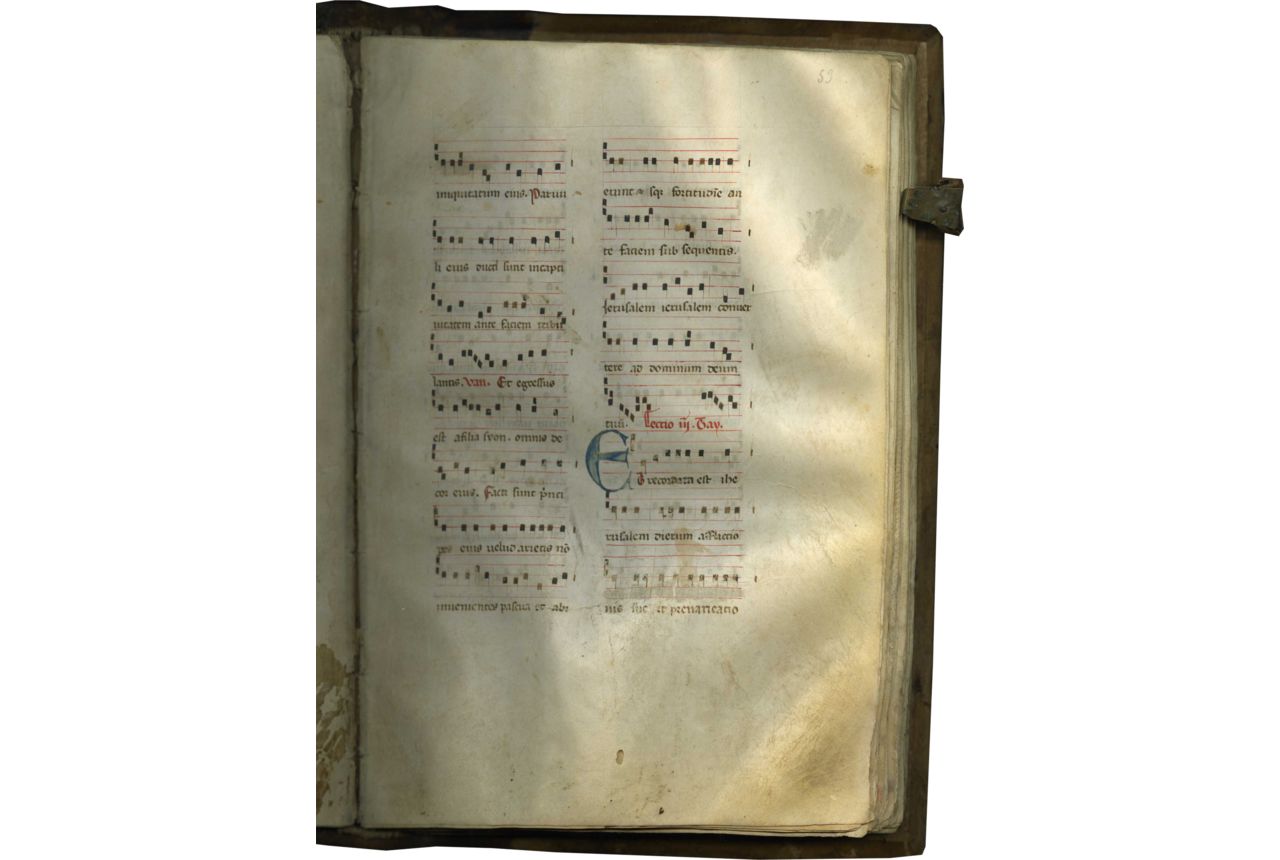 59
iniquitatum eius. Paruu
li eius ducti sunt incapti
uitatem ante faciem tribu
lantis. Van. Et egressus
est afilia syon. omnis de
cor eius. Facti sunt pnci
pes eius uelud arietis nō
inuenientes pascua et abi
erunt absqz fortitudīe an
te faciem sub sequentis.
Jerusalem ierusalem conuer
tere ad dominum deum
tuū. Lectio iij. Zay.
Recordata est ihe
rusalem dierum afflictio
nis sue et preuaricatio